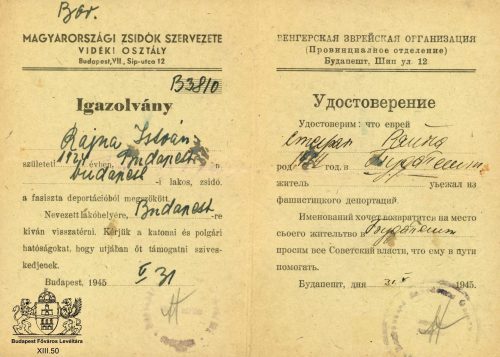 Bor.
MAGYARORSZÁGI ZSIDÓK SZERVEZETE
VIDÉKI OSZTÁLY
Budapest, VII., Sip-utca 12
B3810
Igazolvány
Rajna István
született évben, Budapest n
Budapest -i lakos, zsidó,
a fasiszta deportációból megszökött.
Nevezett lakóhelyére, Budapest -re
kíván visszatérni. Kérjük a katonai és polgári
hatóságokat, hogy utjában őt támogatni szives-
kedjenek.
Budapest, 1945 V 31
Budapest Főváros Levéltára
XIII.50
ВЕНГЕРСКАЯ ЕВРЕЙСКАЯ ОРГАНИЗАЦИЯ
(Провинциалное отделение)
Будапешт, Шип ул. 12
Удостоверение
Удостоверим: что еврей
Стефан Райна
род год. в Будапешт
житель уьежал из
фашистическго депортаций.
Именованный хочет возвратится на место
сьоего жительство в Будапешт
просим все Советскый власти, что ему в пути
помогать.
Будапешт, дня 31 V 1945.